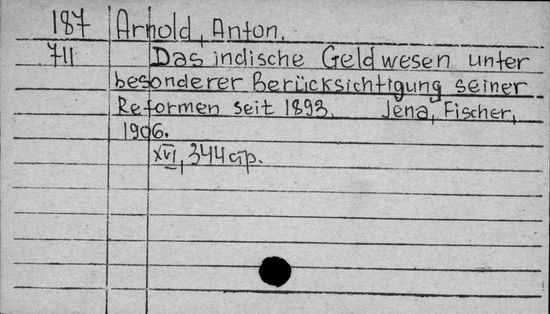 187 Arnold, Anton.
711 Das indische Geldwesen unter
besonderer Berücksichtigung seiner
Reformen seit 1893. Jena, Fischer,
1906.
XVI, 344 стр.